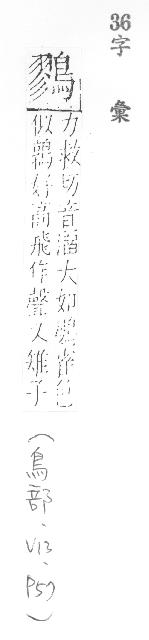 36字彙
鷚
力救切音溜大如鷃雀色
似鶉好高飛作聲又雉子
(鳥部、V13、P57)